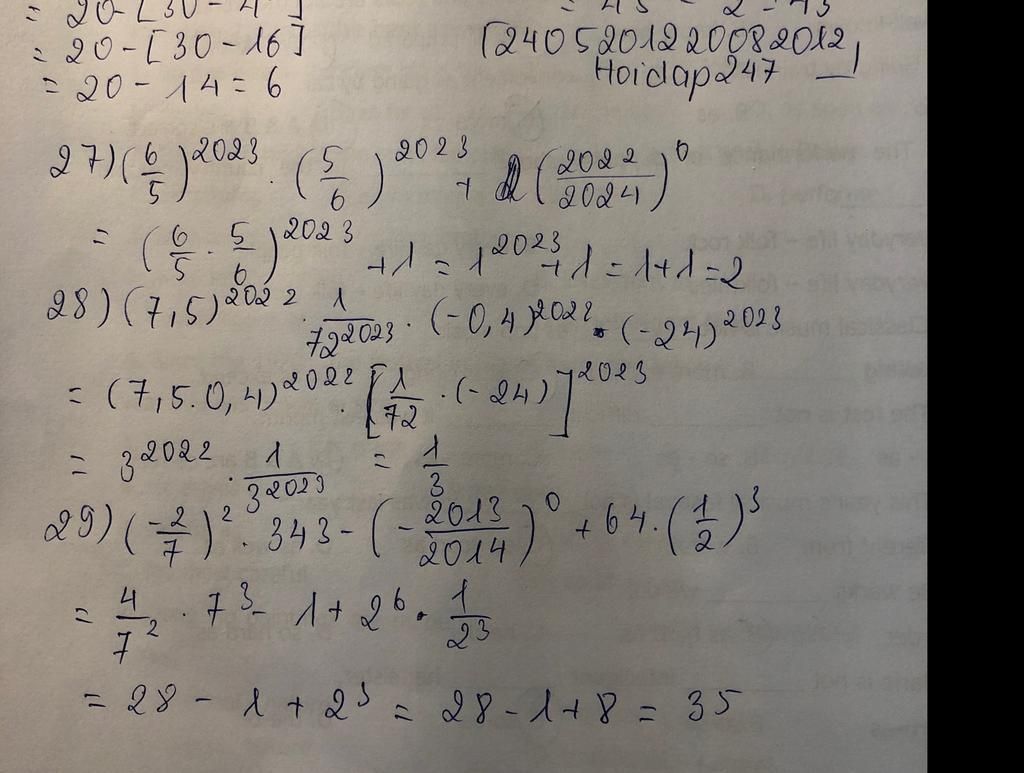 = 20-[30-4]
= 20-[30-16]
= 20-14=6
= 45-2=43
[240520122 0082012
Hoidap247 _]
27) (6/5)^2023 . (5/6)^2023 + (2022/2024)^0
= (6/5 . 5/6)^2023 +1 = 1^2023 +1 = 1+1=2
28) (7,5)^2022 . 1/72^2023 . (-0,4)^2022 . (-24)^2023
= (7,5.0,4)^2022 . [1/72 . (-24)]^2023
= 3^2022 . 1/3^2023 = 1/3
29) (-2/7)^2 . 343 - (-2013/2014)^0 + 64.(1/2)^3
= 4/7^2 . 7^3 - 1+ 2^6 . 1/2^3
= 28 - 1 + 2^3 = 28-1+8 = 35